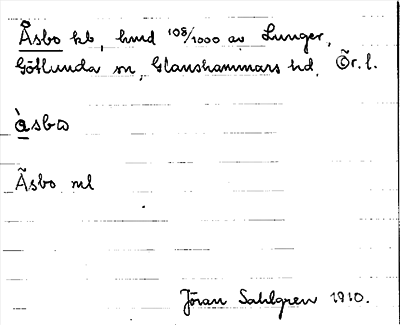 Åsbo kb, hmd 108/1000 av Lunger,
Götlunda sn, Glanshammars hd, Ör. l.
àsbɷ
Åsbo ml
Jöran Sahlgren 1910.